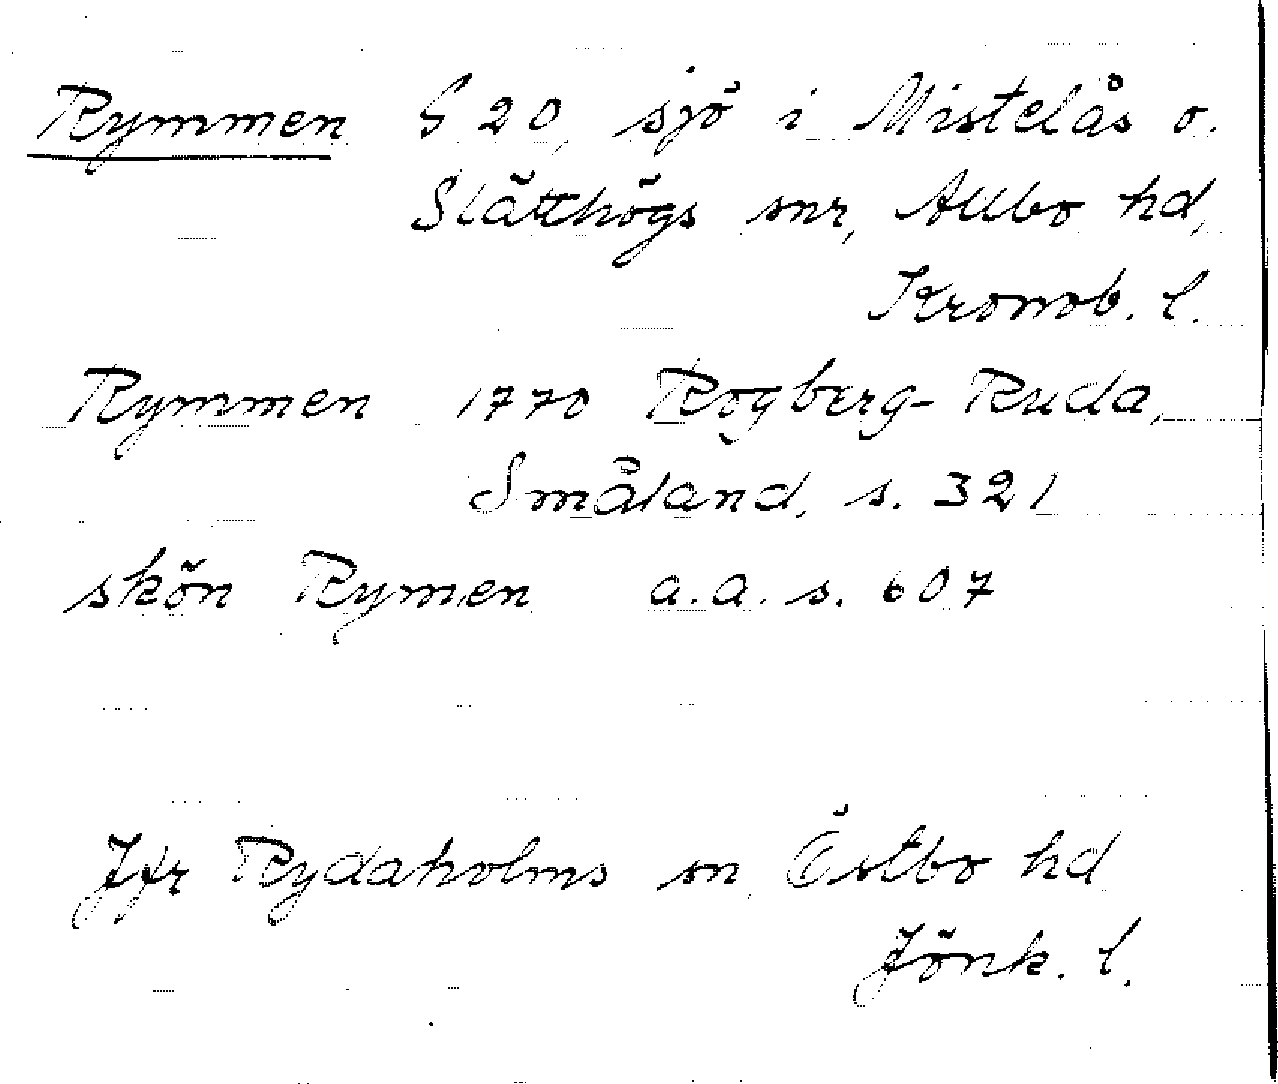 Rymmen G 20, sjö i Mistelås o.
Slätthögs snr, Allbo hd,
Kronob. l.
Rymmen 1770 Rogberg-Ruda,
Småland, s. 321
skön Rymen a.a. s. 607
Jfr Rydaholms sn, Östbo hd
Jönk. l.